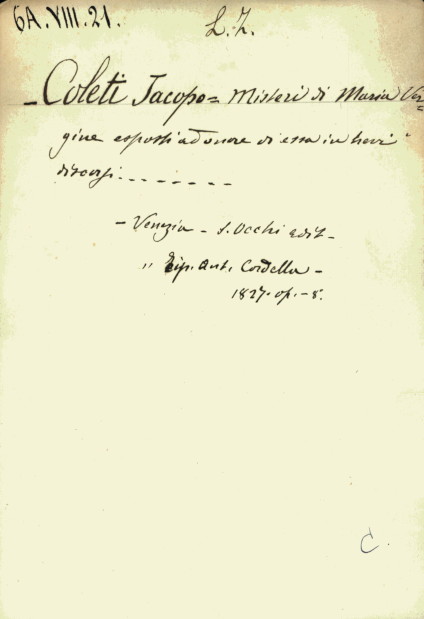 6A.VIII.21.
L.Z.
- Coleti Jacopo = Misteri di Maria Ver=
gine esposti ad onore di essa in brevi
discorsi - - - - - - -
- Venezia - S. Occhi edit -
" Tip. Ant. Cordella -
1827. op. - 8.
C.